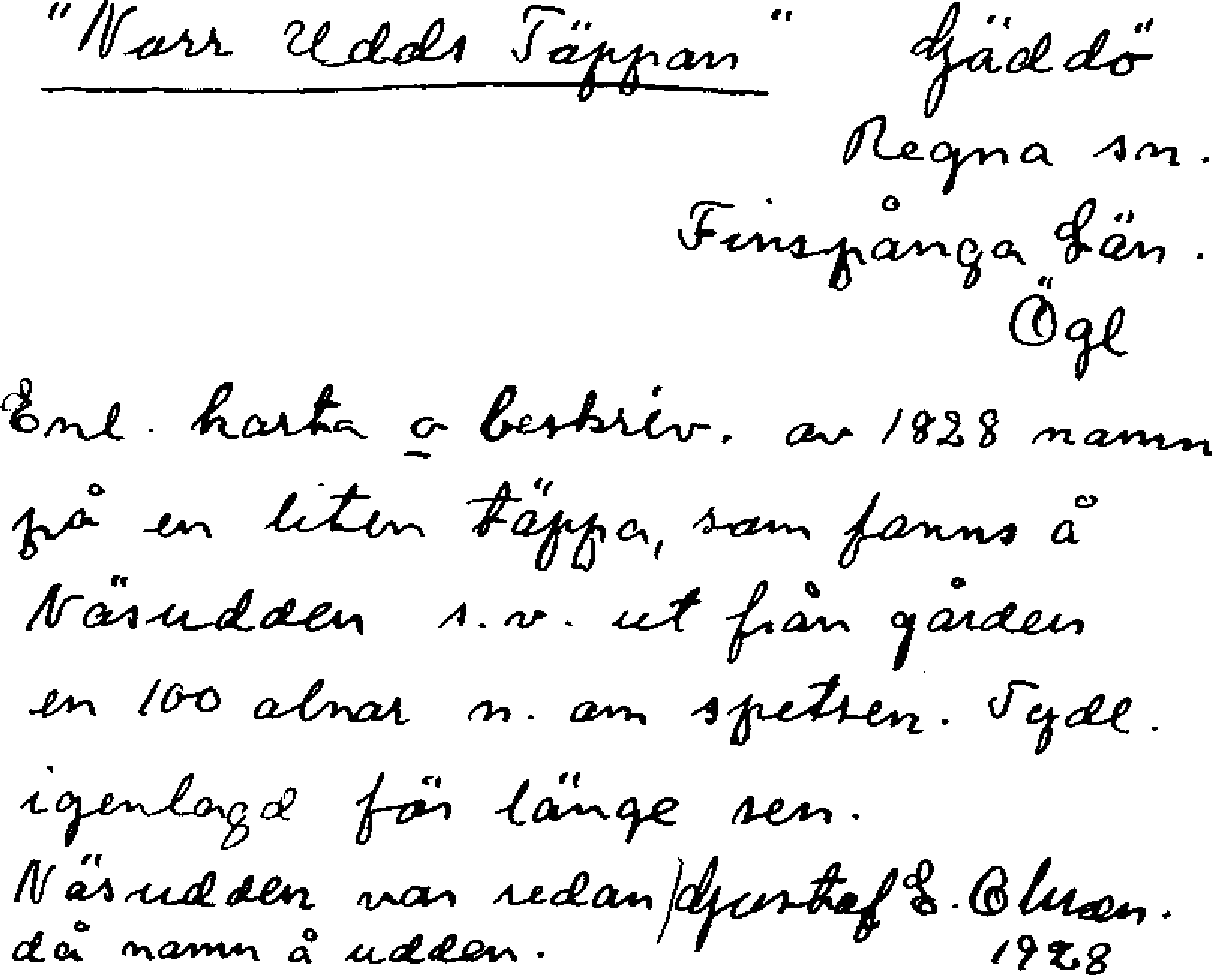 "Norr Udds Täppan" Gäddö
Regna sn.
Finspånga Län.
Ögl
Enl. karta o beskriv. av 1828 namn
på en liten täppa, som fanns å
Näsudden s.v. ut från gården
en 100 alnar n. om spetsen. Tydl.
igenlagd för länge sen.
Näsudden var redan / Gustaf E. Olsson.
då namn å udden. 1928